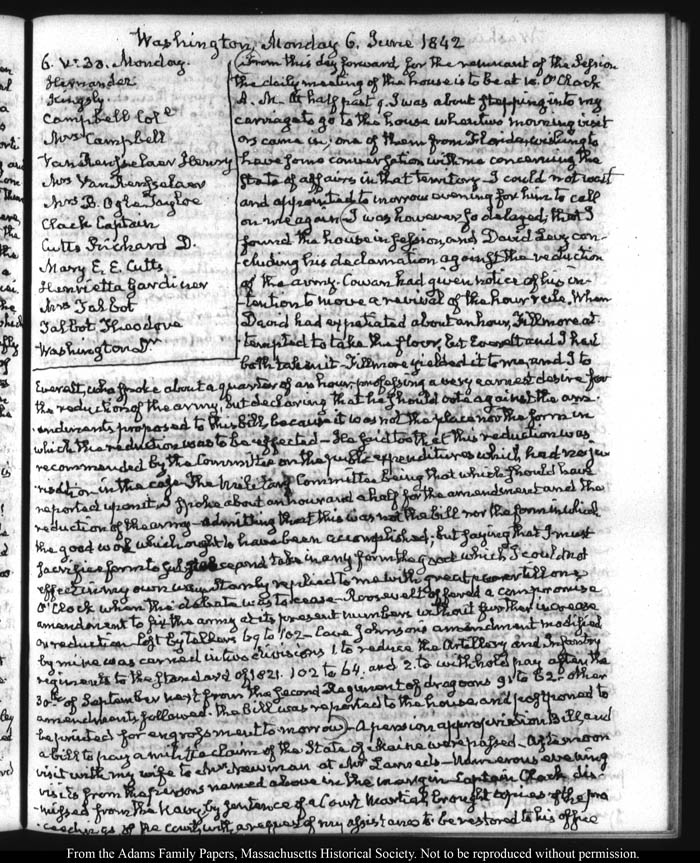 Washington, Monday 6. June 1842
6. V: 30. Monday.
Hernandez
Kingsly
Campbell Col.l
Mrs Campbell
Van Rensselaer Henry
Mrs Van Rensselaer
Mrs B. Ogle Tayloe
Clack Captain
Cutts Richard D.
Mary E. E. Cutts
Henrietta Gardiner
Mrs Talbot
Talbot Theodore
Washington Dr
From this day forward, for the remnant of the Session
the daily meeting of the house is to be at 10. O'Clock
A. M. At half past 9. I was about stepping into my
carriage to go to the house when two morning visit
ors came in, one of them from Florida, wishing to
have some conversation with me concerning the
State of affairs in that territory. I could not wait
and appointed to morrow evening for him to call
on me again. I was however so delayed, that I
found the house in Session, and David Levy con-
-cluding his declamation against the reduction
of the army. Cowan had given notice of his in-
-tention to move a revival of the hour rule. When
David had expatiated about an hour, Fillmore at-
-tempted to take the floor, but Everett and I had
both taken it. Fillmore yielded it to me, and I to
Everett, who spoke about a quarter of an hour, professing a very earnest desire for
the reduction of the army, but declaring that he should vote against the am-
-endments proposed to this Bill, because it was not the place nor the form in
which the reduction was to be effected. He said too that this reduction was
recommended by the Committee on the public expenditures which had no jur-
-isdiction in the case. The Military Committee being that which should have
reported upon it. I spoke about an hour and a half for the amendment and the
reduction of the army, admitting that this was not the bill nor the form in which
the good work which ought to have been accomplished; but saying that I must
sacrifice form to substance and take in any form the good which I could not
effect in my own way. replied to me with great power till one
O'Clock when the debate was to cease. Roosevelt offered a compromise
amendment to fix the army at its present numbers without further increase
or reduction. lost by tellers 69 to 102. Cave Johnson's amendment modified
by mine was carried in two divisions 1. to reduce the Artillery and Infantry
regiments to the standard of 1821. 102 to 64. and 2. to withhold pay after the
30th of September next from the second Regiment of dragoons 91 to 62. other
amendments followed. the Bill was reported to the house and postponed to
be printed for engrossment to morrow. A pension appropriation Bill, and
a bill to pay a militia claim of the State of Maine were passed. Afternoon
visit with my wife to Mrs Newman at Mr Lanneds. Numerous evening
visits from the persons named above in the margin. Captain Clack, dis-
-missed from the Navy, by sentence of a Court Martial, brought copies of the pro
-ceedings of the Court, with a request of my assistance to be restored to his office
From the Adams Family Papers, Massachusetts Historical Society. Not to be reproduced without permission.